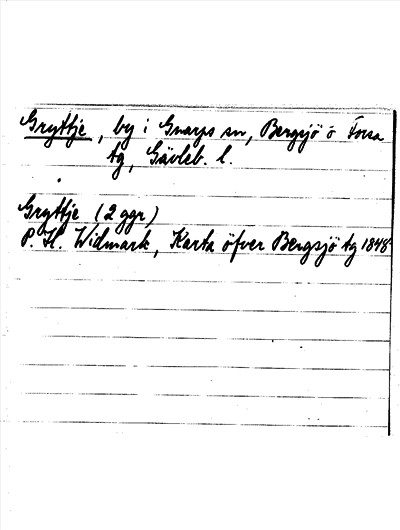 Gryttje, by i Gnarps sn, Bergsjö o Forsa
tg, Gävleb. l.
Gryttje (2 ggr)
P. H. Widmark, Karta öfver Bergsjö tg 1848